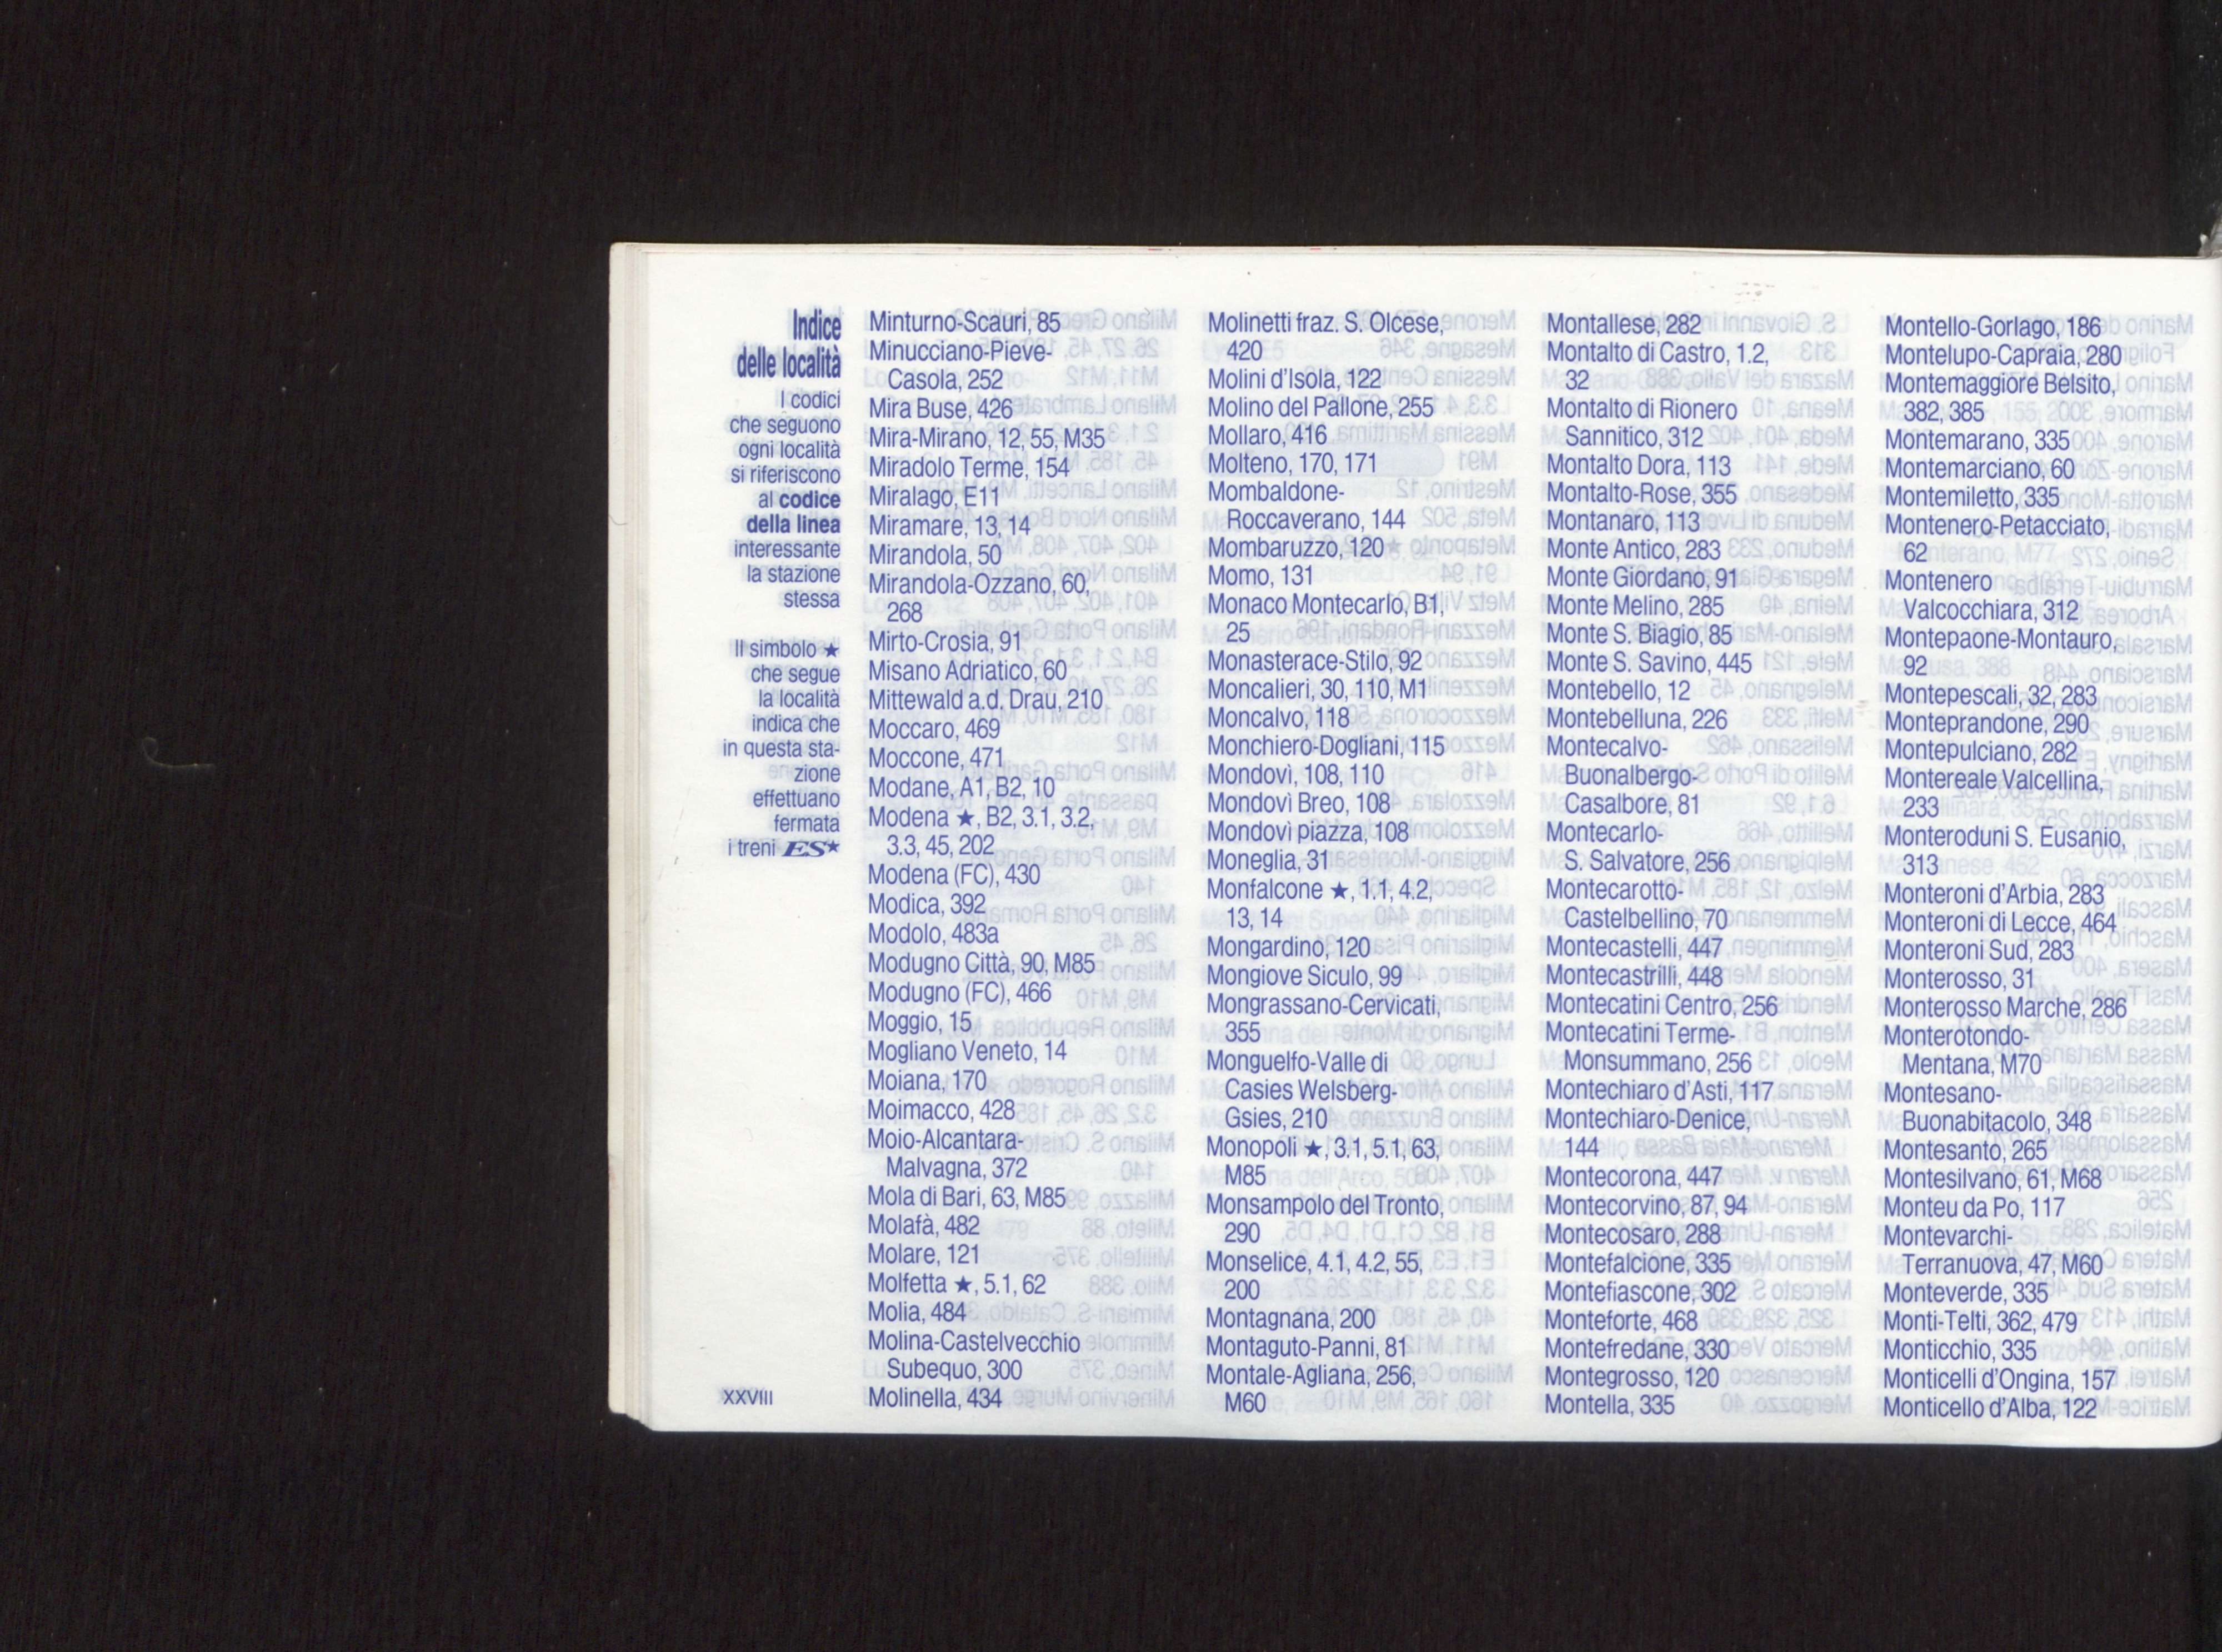 Indice
delle località
I codici
che seguono
ogni località
si riferiscono
al codice
della linea
interessante
la stazione
stessa
Il simbolo ★
che segue
la località
indica che
in questa sta-
zione
effettuano
fermata
i treni ES★
XXVIII
Minturno-Scauri, 85
Minucciano-Pieve-
Casola, 252
Mira Buse, 426
Mira-Mirano, 12, 55, M35
Miradolo Terme, 154
Miralago, E11
Miramare, 13, 14
Mirandola, 50
Mirandola-Ozzano, 60,
268
Mirto-Crosia, 91
Misano Adriatico, 60
Mittewald a.d. Drau, 210
Moccaro, 469
Moccone, 471
Modane, A1, B2, 10
Modena ★, B2, 3.1, 3.2,
3.3, 45, 202
Modena (FC), 430
Modica, 392
Modolo, 483a
Modugno Città, 90, M85
Modugno (FC), 466
Moggio, 15
Mogliano Veneto, 14
Moiana, 170
Moimacco, 428
Moio-Alcantara-
Malvagna, 372
Mola di Bari, 63, M85
Molafà, 482
Molare, 121
Molfetta ★, 5.1, 62
Molia, 484
Molina-Castelvecchio
Subequo, 300
Molinella, 434
Molinetti fraz. S. Olcese,
420
Molini d'Isola, 122
Molino del Pallone, 255
Mollaro, 416
Molteno, 170, 171
Mombaldone-
Roccaverano, 144
Mombaruzzo, 120
Momo, 131
Monaco Montecarlo, B1,
25
Monasterace-Stilo, 92
Moncalieri, 30, 110, M1
Moncalvo, 118
Monchiero-Dogliani, 115
Mondovì, 108, 110
Mondovì Breo, 108
Mondovì piazza, 108
Moneglia, 31
Monfalcone ★, 1.1, 4.2,
13, 14
Mongardino, 120
Mongiove Siculo, 99
Mongrassano-Cervicati,
355
Monguelfo-Valle di
Casies Welsberg-
Gsies, 210
Monopoli ★, 3.1, 5.1, 63,
M85
Monsampolo del Tronto,
290
Monselice, 4.1, 4.2, 55,
200
Montagnana, 200
Montaguto-Panni, 81
Montale-Agliana, 256,
M60
Montallese, 282
Montalto di Castro, 1.2,
32
Montalto di Rionero
Sannitico, 312
Montalto Dora, 113
Montalto-Rose, 355
Montanaro, 113
Monte Antico, 283
Monte Giordano, 91
Monte Melino, 285
Monte S. Biagio, 85
Monte S. Savino, 445
Montebello, 12
Montebelluna, 226
Montecalvo-
Buonalbergo-
Casalbore, 81
Montecarlo-
S. Salvatore, 256
Montecarotto-
Castelbellino, 70
Montecastelli, 447
Montecastrilli, 448
Montecatini Centro, 256
Montecatini Terme-
Monsummano, 256
Montechiaro d'Asti, 117
Montechiaro-Denice,
144
Montecorona, 447
Montecorvino, 87, 94
Montecosaro, 288
Montefalcione, 335
Montefiascone, 302
Monteforte, 468
Montefredane, 330
Montegrosso, 120
Montella, 335
Montello-Gorlago, 186
Montelupo-Capraia, 280
Montemaggiore Belsito,
382, 385
Montemarano, 335
Montemarciano, 60
Montemiletto, 335
Montenero-Petacciato,
62
Montenero
Valcocchiara, 312
Montepaone-Montauro,
92
Montepescali, 32, 283
Monteprandone, 290
Montepulciano, 282
Montereale Valcellina,
233
Monteroduni S. Eusanio,
313
Monteroni d'Arbia, 283
Monteroni di Lecce, 464
Monteroni Sud, 283
Monterosso, 31
Monterosso Marche, 286
Monterotondo-
Mentana, M70
Montesano-
Buonabitacolo, 348
Montesanto, 265
Montesilvano, 61, M68
Monteu da Po, 117
Montevarchi-
Terranuova, 47, M60
Monteverde, 335
Monti-Telti, 362, 479
Monticchio, 335
Monticelli d'Ongina, 157
Monticello d'Alba, 122